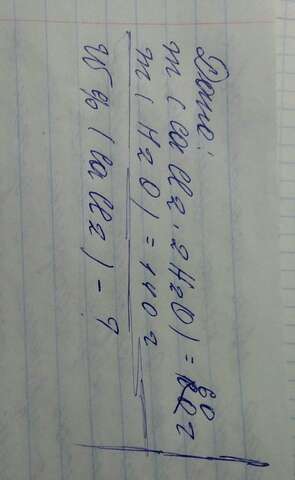 Дано:
m (CaCl2·2H2O) = 60 г
m (H2O) = 440 г
W% (CaCl2) - ?